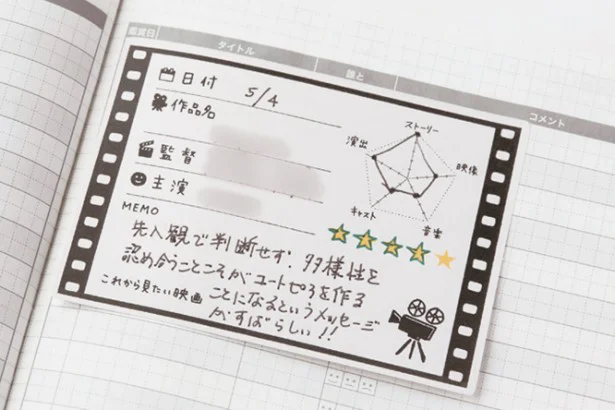 鑑賞日
タイトル
誰と
コメント
日付 5/4
作品名
監督
主演
ストーリー
映像
音楽
キャスト
演出
MEMO
先入観で判断せず、多様性を
認め合うことこそがユートピアを作る
ことになるというメッセージ
がすばらしい!!
これから見たい映画